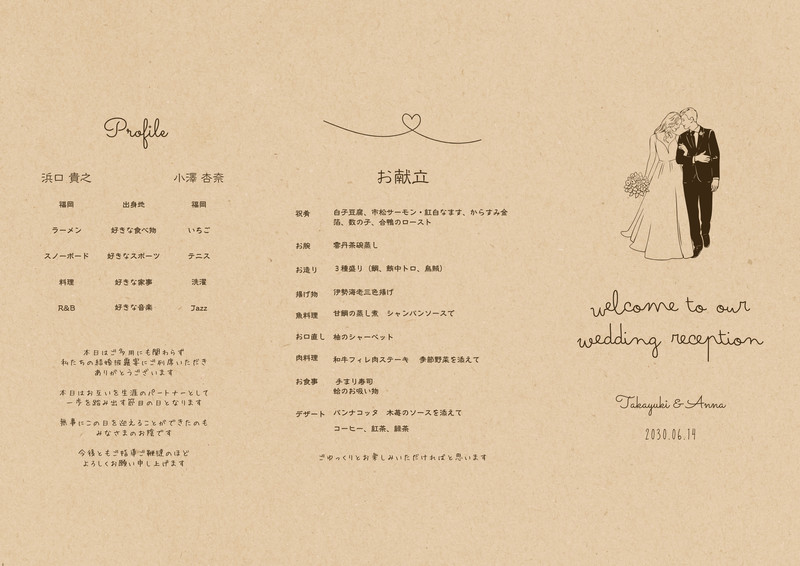 Profile
浜口 貴之 小澤 杏奈
福岡 出身地 福岡
ラーメン 好きな食べ物 いちご
スノーボード 好きなスポーツ テニス
料理 好きな家事 洗濯
R&B 好きな音楽 Jazz
本日はご多用にも関わらず
私たちの結婚披露宴にご列席いただき
ありがとうございます
本日はお互いを生涯のパートナーとして
一歩を踏み出す節目の日となります
無事にこの日を迎えることができたのも
みなさまのお陰です
今後ともご指導ご鞭撻のほど
よろしくお願い申し上げます
お献立
祝肴 白子豆腐、市松サーモン・紅白なます、からすみ金
箔、数の子、合鴨のロースト
お椀 雲丹茶碗蒸し
お造り 3種盛り（鯛、鮪中トロ、烏賊）
揚げ物 伊勢海老三色揚げ
魚料理 甘鯛の蒸し煮 シャンパンソースで
お口直し 柚のシャーベット
肉料理 和牛フィレ肉ステーキ 季節野菜を添えて
お食事 手まり寿司
蛤のお吸い物
デザート パンナコッタ 木苺のソースを添えて
コーヒー、紅茶、緑茶
ごゆっくりとお楽しみいただければと思います
welcome to our
wedding reception
Takayuki & Anna
2030.06.14